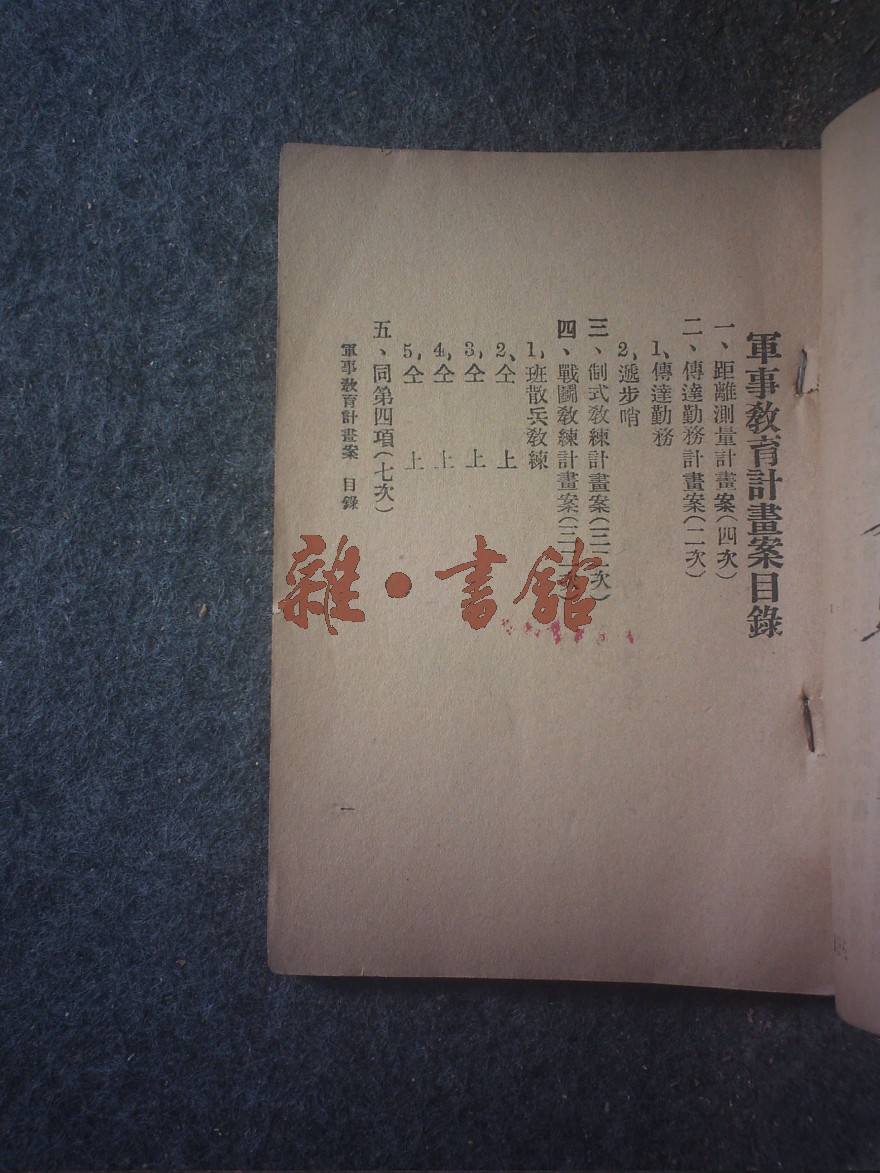 軍事敎育計畫案目錄
一、距離測量計畫案(四次)
二、傳達勤務計畫案(二次)
1,傳達勤務
2,遞步哨
三、制式敎練計畫案(三二次)
四、戰鬪敎練計畫案(三二次)
1,班散兵敎練
2,仝 上
3,仝 上
4,仝 上
5,仝 上
五、同第四項(七次)
軍事敎育計畫案 目錄
一
雜·書館